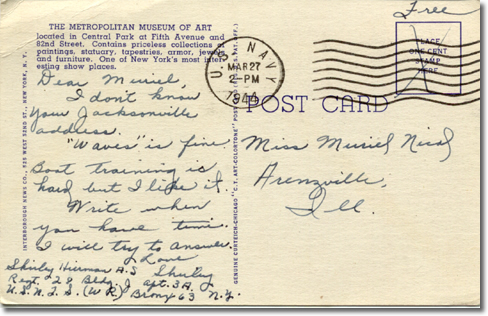 Free
THE METROPOLITAN MUSEUM OF ART
located in Central Park at Fifth Avenue and
82nd Street. Contains priceless collections of
paintings, statuary, tapestries, armor, jewels
and furniture. One of New York's most inter-
esting show places.
U.S. NAVY
MAR 27
2-PM
1944
PLACE
ONE CENT
STAMP
HERE
POST CARD
Dear Muriel,
I don't know
your Jacksonville
address.
"Waves" is fine
Boot training is
hard but I like it.
Write when
you have time.
I will try to answer.
Love
Shirley
Shirley Hierman A.S.
Regt. 28 Bldg. J apt. 3A.
U.S.N.T.S. (W.R.) Bronx 63 N.Y.
Miss Muriel
Arenzville,
Ill.
INTERBOROUGH NEWS CO., WEST 52ND ST., NEW YORK, N. Y.
GENUINE CURTEICH-CHICAGO "C.T. ART-COLORTONE" POST CARD (REG. U.S. PAT. OFF.)